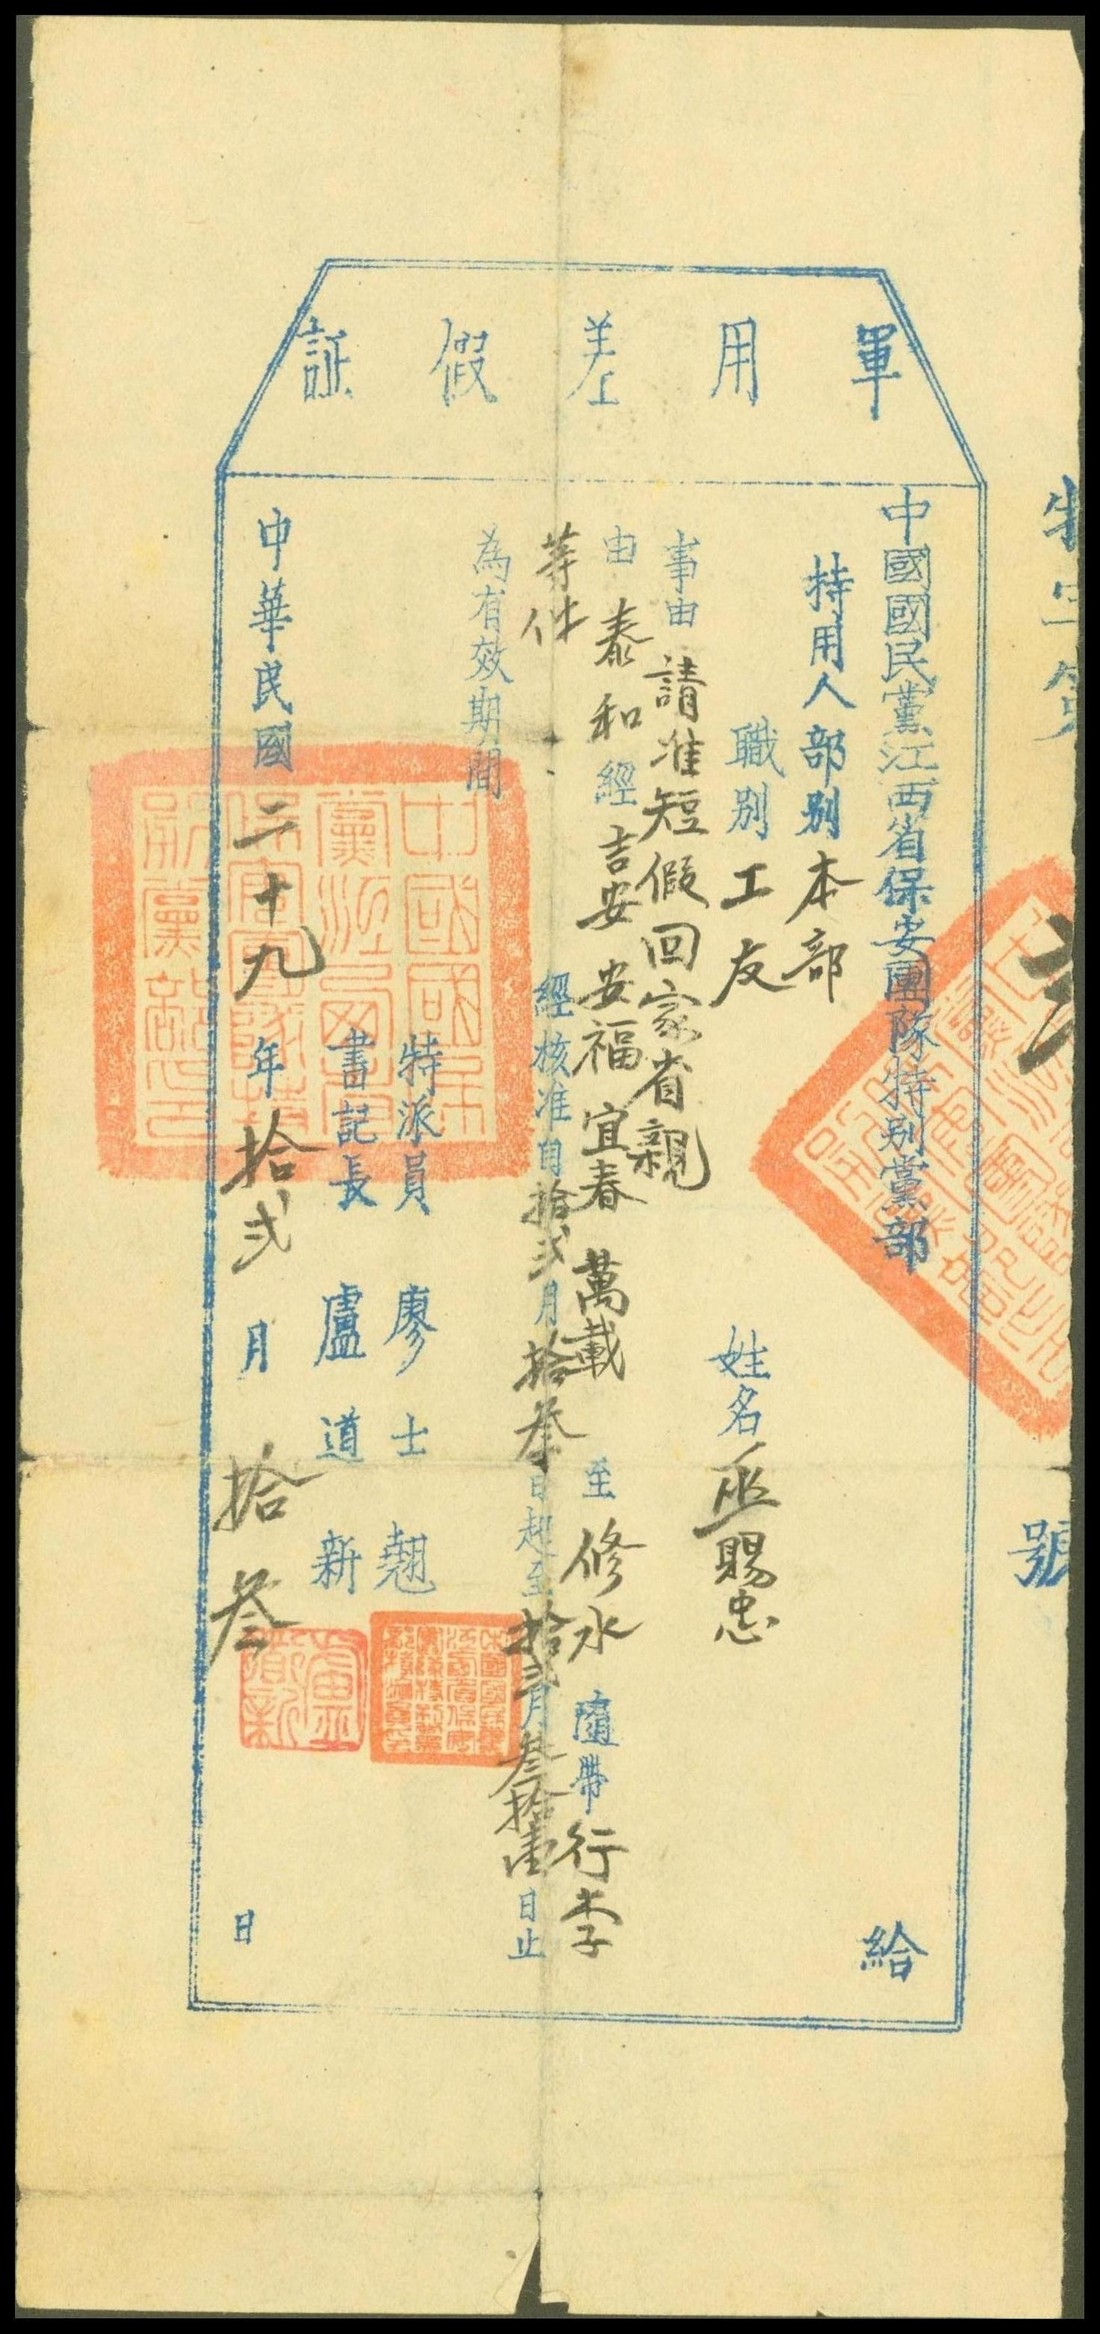 軍用差假証
特字第
號
中國國民黨江西省保安團隊特別黨部
給
持用人部別本部
職別工友
姓名巫賜忠
事由請准短假回家省親
由泰和經吉安 安福 宜春 萬載至修水隨帶行李
等件
經核准自拾弍月拾叁日起至拾弍月叁拾壹日止
為有效期間
特派員廖士翹
書記長盧道新
中華民國二十九年拾弍月拾叁日